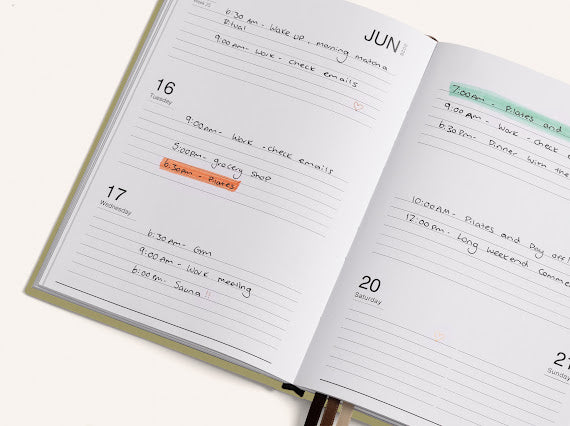 Week 25
JUN
6:30 AM - Wake up, morning matcha
Ritual
9:00AM - Work - check emails
16
Tuesday
9:00AM - Work - check emails
5:00PM - grocery shop
6:30PM - Pilates
17
Wednesday
6:30AM - Gym
9:00AM - Work meeting
6:00PM - Sauna !!
7:00AM - Pilates and
9:00 AM - Work - check e
6:30PM - Dinner with the
10:00AM - Pilates and Day off!
12:00PM - Long weekend comme
20
Saturday
21
Sunday